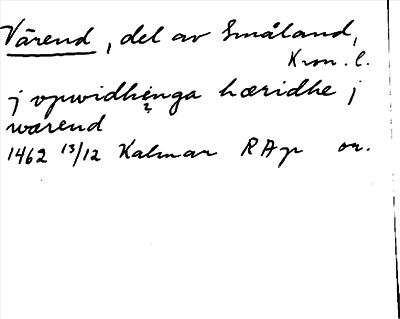 Värend, del av Småland,
Kron. l.
j vpwidhinga hæridhe j
wærend
1462 13/12 Kalmar RAp or.